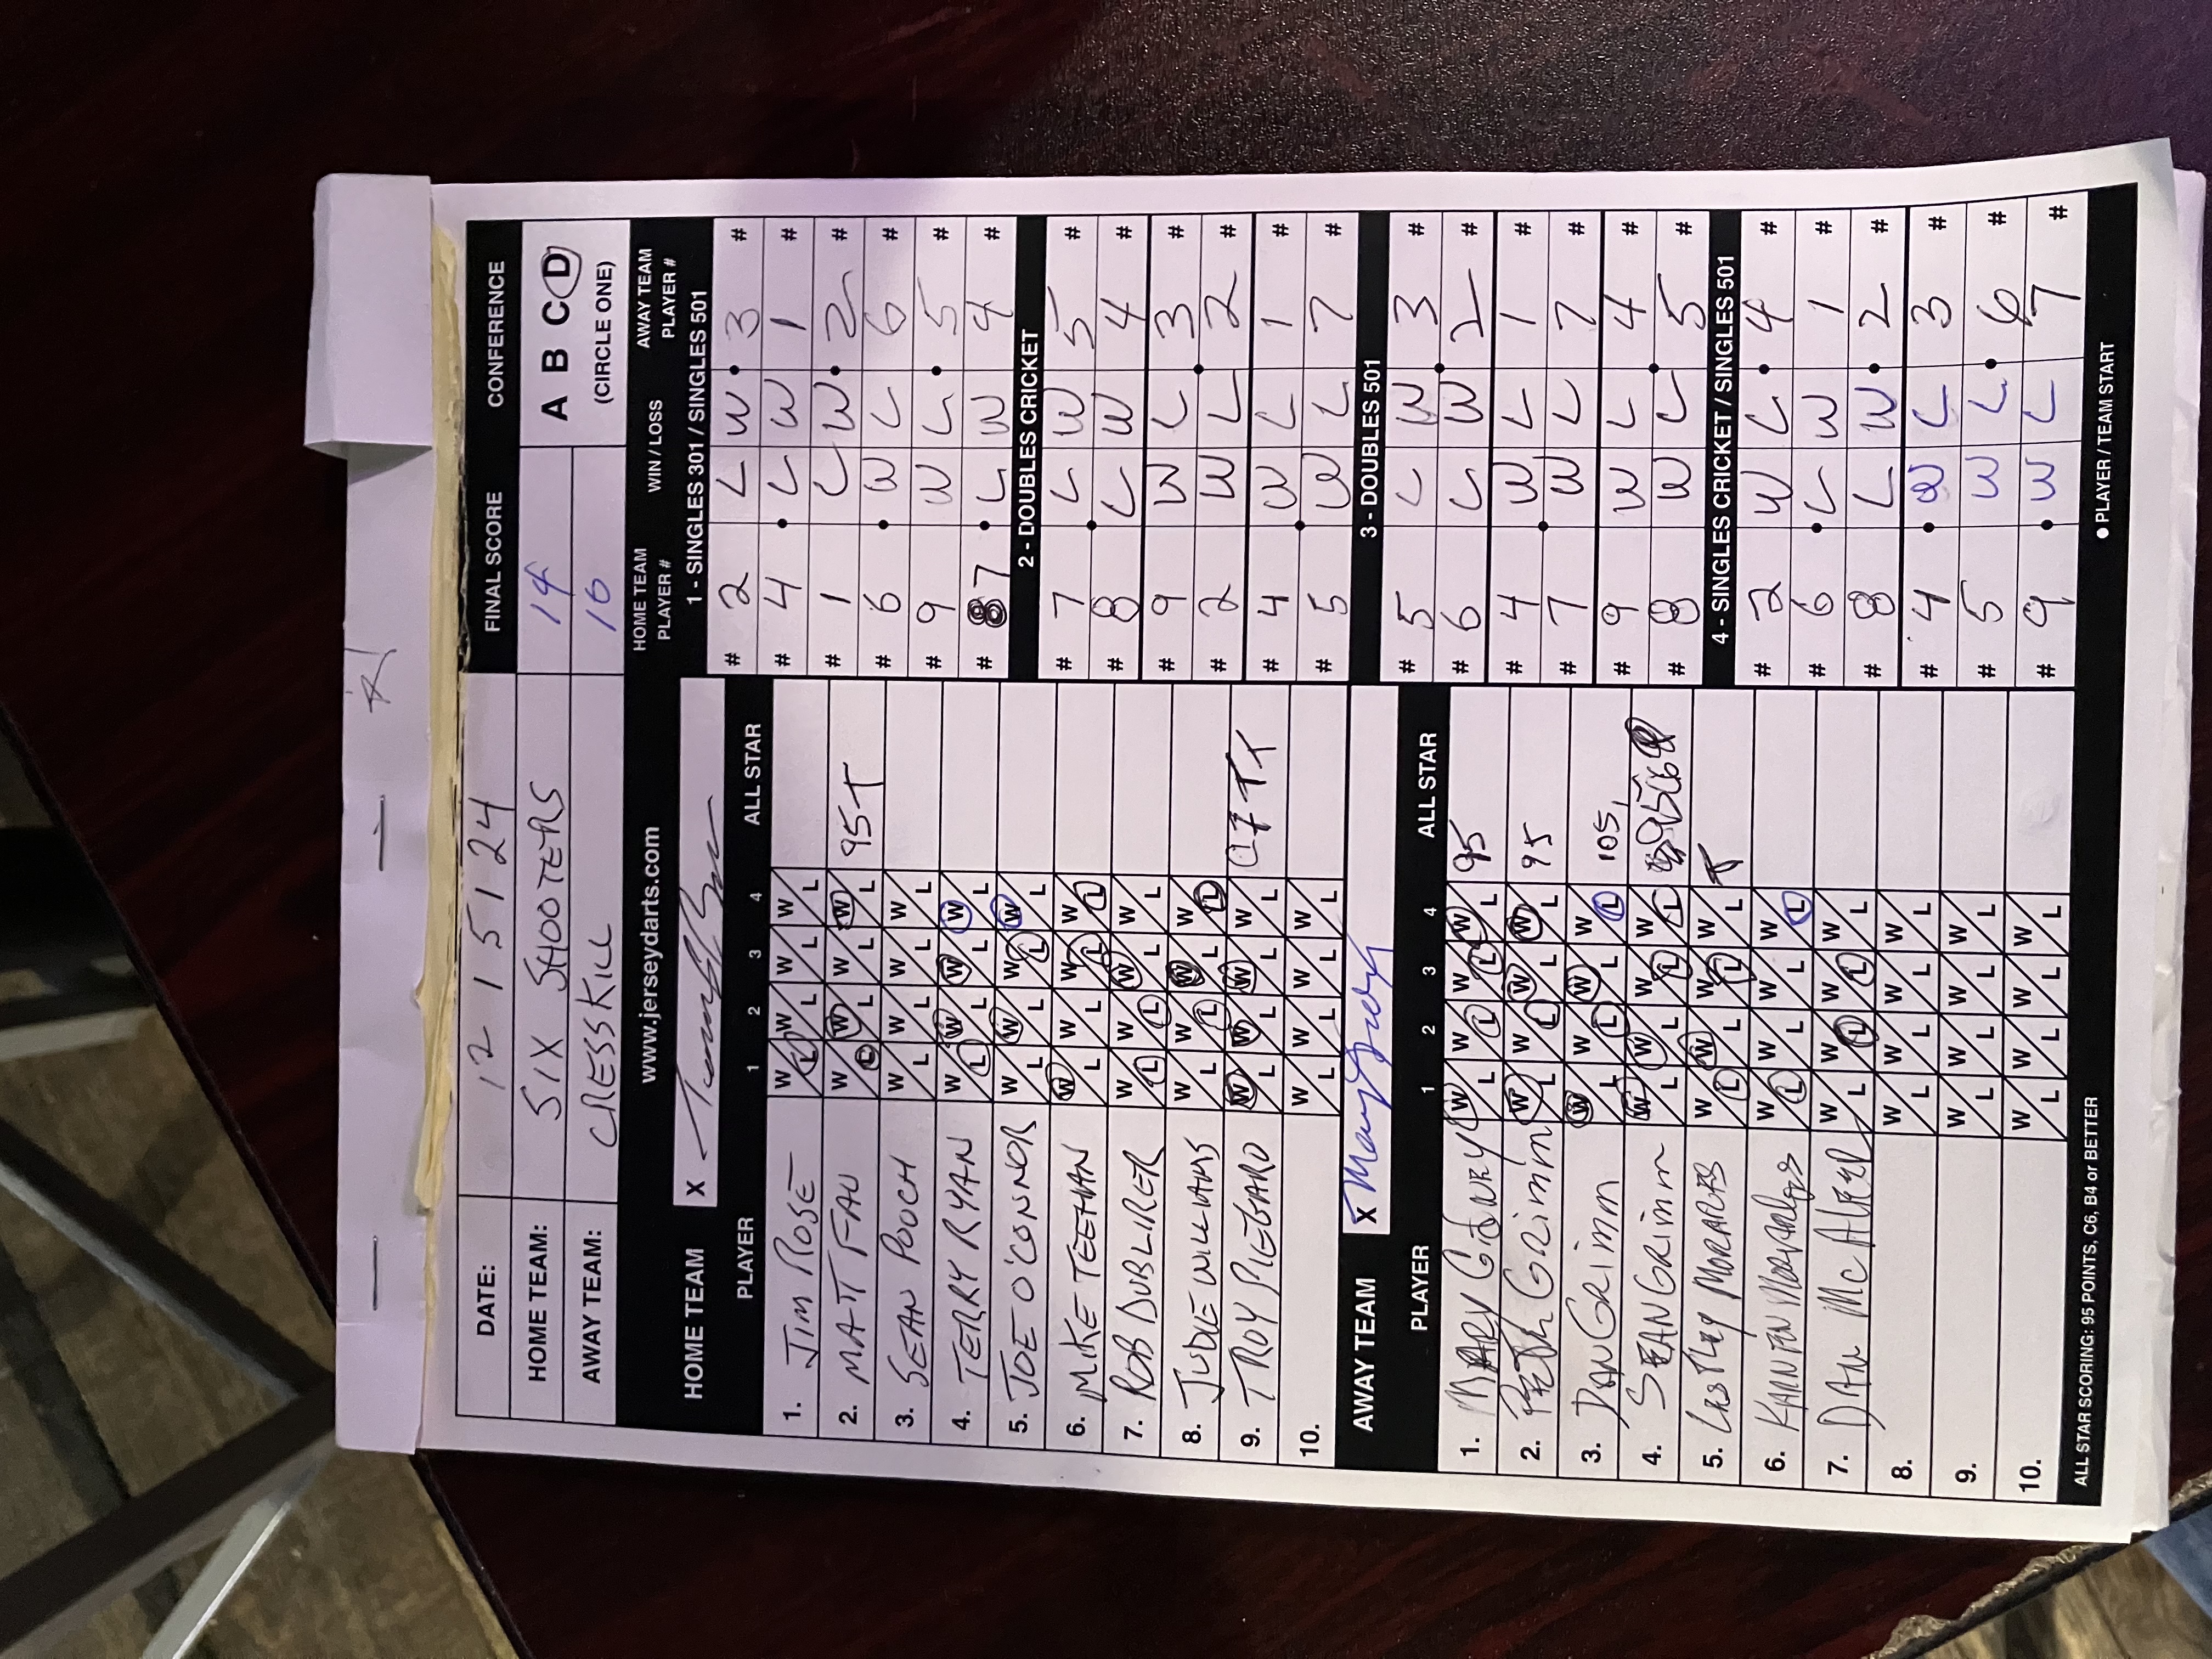 DATE: 12/5/24 FINAL SCORE CONFERENCE
HOME TEAM: SIX SHOOTERS 14 A B C D
AWAY TEAM: CRESSKILL 10 (CIRCLE ONE)
www.jerseydarts.com
HOME TEAM X
PLAYER 1 2 3 4 ALL STAR
1. JIM ROSE W L W L W L W L
2. MATT FAU W L W L W L W L 95T
3. SEAN POOCH W L W L W L W L
4. TERRY RYAN W L W L W L W L
5. JOE O'CONNOR W L W L W L W L
6. MIKE TEEHAN W L W L W L W L
7. ROB DUBLIRER W L W L W L W L
8. JUDIE WILLIAMS W L W L W L W L
9. TROY PIEGARO W L W L W L W L C7 TT
10. W L W L W L W L
AWAY TEAM X
PLAYER 1 2 3 4 ALL STAR
1. MARY W L W L W L W L 95
2. Grimm W L W L W L W L 95
3. DAN GRimm W L W L W L W L 105
4. SEAN GRimm W L W L W L W L
5. MORALES W L W L W L W L T
6. W L W L W L W L
7. DAN W L W L W L W L
8. W L W L W L W L
9. W L W L W L W L
10. W L W L W L W L
ALL STAR SCORING: 95 POINTS, C6, B4 or BETTER
HOME TEAM PLAYER # WIN / LOSS AWAY TEAM PLAYER #
1 - SINGLES 301 / SINGLES 501
# 2 L W 3 #
# 4 L W 1 #
# 1 L W 2 #
# 6 W L 6 #
# 9 W L 5 #
# 7 L W 4 #
2 - DOUBLES CRICKET
# 7 L W 5 #
# 8 L W 4 #
# 9 W L 3 #
# 2 W L 2 #
# 4 W L 1 #
# 5 W L 7 #
3 - DOUBLES 501
# 5 L W 3 #
# 6 L W 2 #
# 4 W L 1 #
# 7 W L 7 #
# 9 W L 4 #
# 8 W L 5 #
4 - SINGLES CRICKET / SINGLES 501
# 2 W L 4 #
# 6 L W 1 #
# 8 L W 2 #
# 4 W L 3 #
# 5 W L 6 #
# 9 W L 7 #
● PLAYER / TEAM START